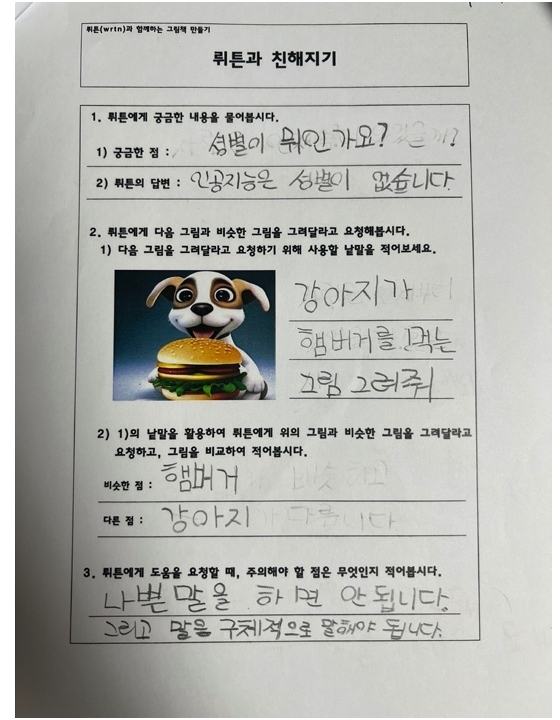 뤼튼(wrtn)과 함께하는 그림책 만들기
뤼튼과 친해지기
1. 뤼튼에게 궁금한 내용을 물어봅시다.
1) 궁금한 점 : 성별이 뭐인가요?
2) 뤼튼의 답변 : 인공지능은 성별이 없습니다.
2. 뤼튼에게 다음 그림과 비슷한 그림을 그려달라고 요청해봅시다.
1) 다음 그림을 그려달라고 요청하기 위해 사용할 낱말을 적어보세요.
강아지가
햄버거를 먹는
그림 그려줘
2) 1)의 낱말을 활용하여 뤼튼에게 위의 그림과 비슷한 그림을 그려달라고
요청하고, 그림을 비교하여 적어봅시다.
비슷한 점 : 햄버거
다른 점 : 강아지
3. 뤼튼에게 도움을 요청할 때, 주의해야 할 점은 무엇인지 적어봅시다.
나쁜말을 하면 안됩니다.
그리고 말을 구체적으로 말해야 됩니다.